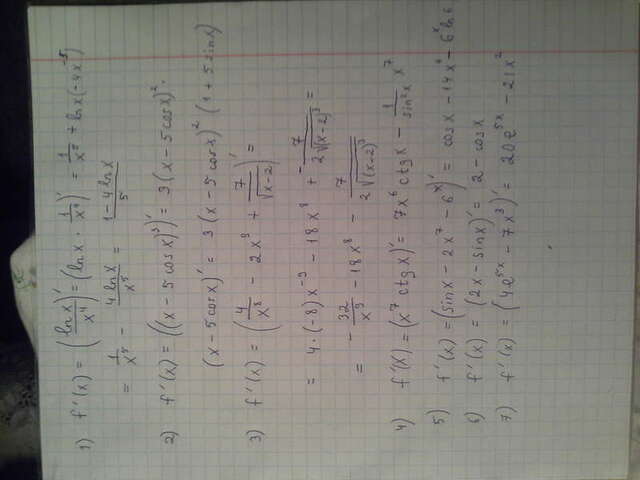 1) f'(x) = (lnx/x⁴)' = (lnx · 1/x⁴)' = 1/x⁵ + lnx(-4x⁻⁵)
= 1/x⁵ - 4lnx/x⁵ = 1-4lnx/5
2) f'(x) = ((x-5cosx)³)' = 3(x-5cosx)² ·
(x-5cosx)' = 3(x-5cosx)² (1+5sinx)
3) f'(x) = (4/x⁸ - 2x⁹ + 7/√(x-2))' =
= 4·(-8)x⁻⁹ - 18x⁸ + -7/2√(x-2)³ =
= - 32/x⁹ - 18x⁸ - 7/2√(x-2)³
4) f'(x) = (x⁷ ctgx)' = 7x⁶ ctgx - 1/sin²x x⁷
5) f'(x) = (sinx - 2x⁷ - 6ˣ)' = cosx - 14x⁶ - 6ˣln6
6) f'(x) = (2x-sinx)' = 2-cosx
7) f'(x) = (4e⁵ˣ - 7x³)' = 20e⁵ˣ - 21x²